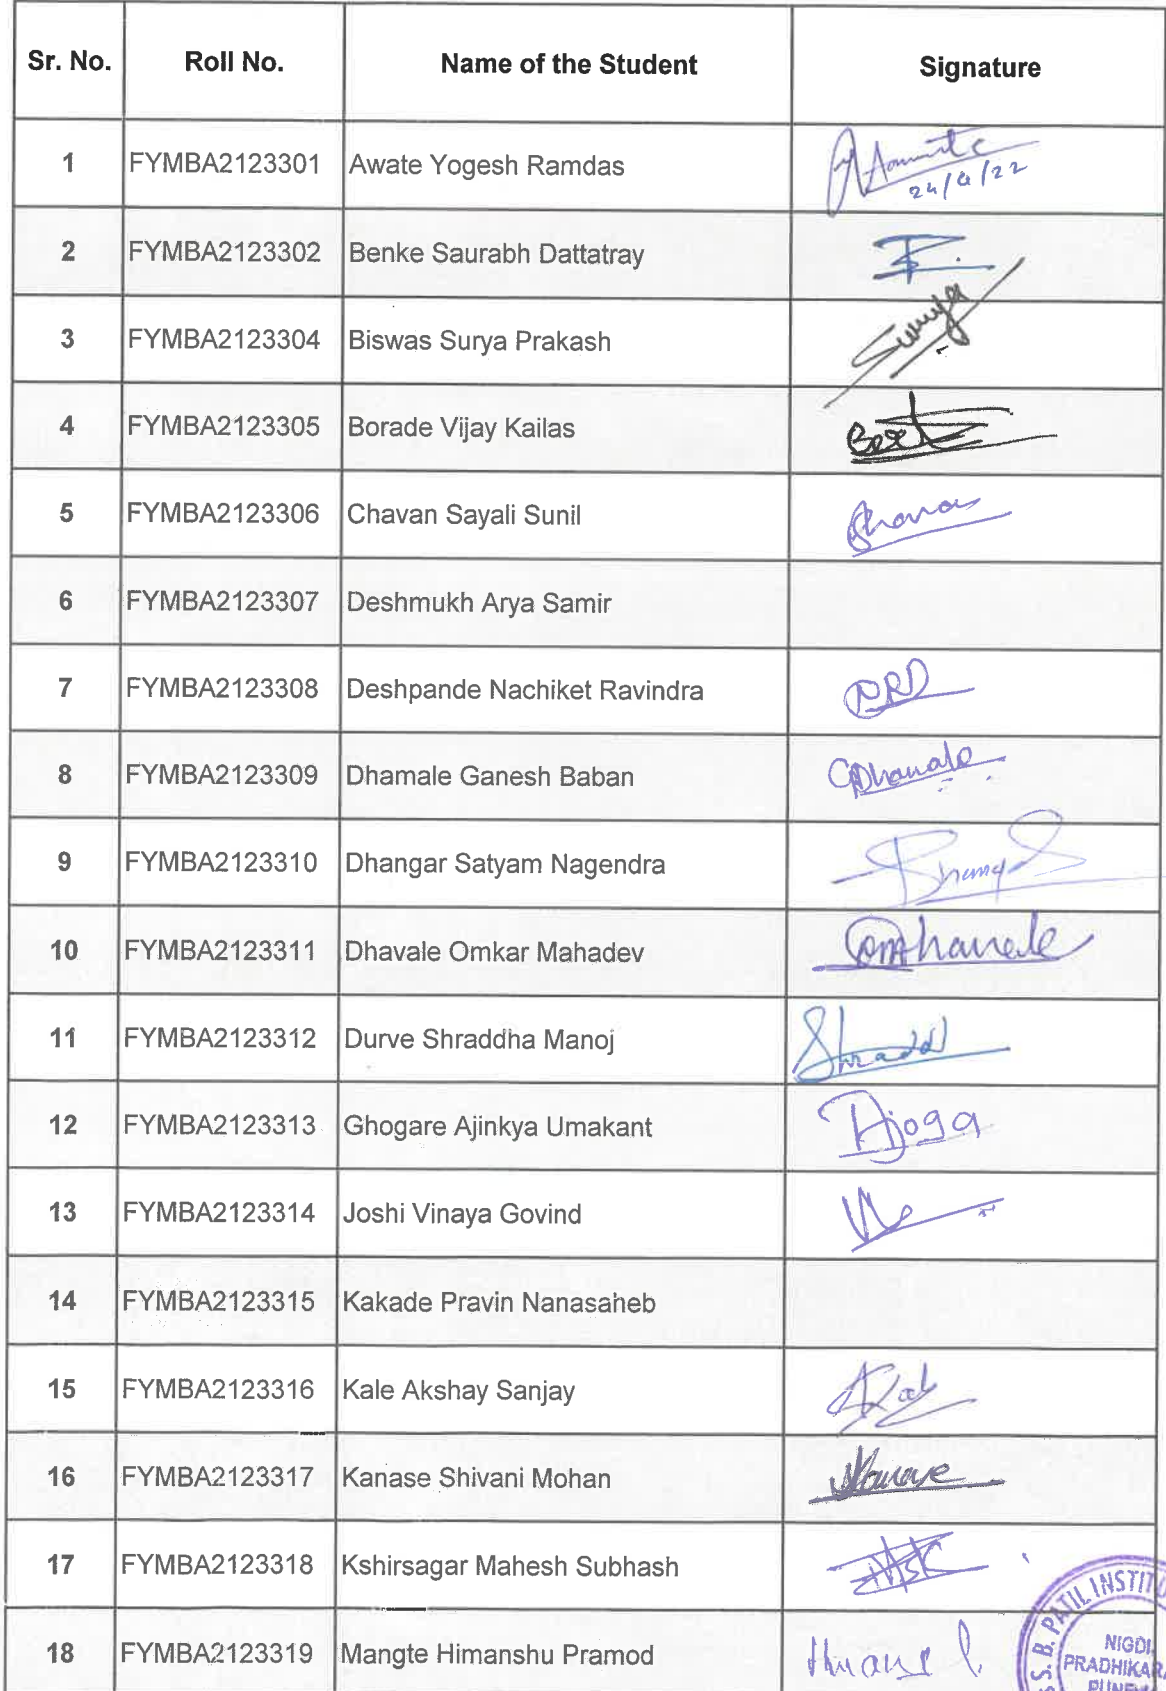 Sr. No. Roll No. Name of the Student Signature
1 FYMBA2123301 Awate Yogesh Ramdas
24/4/22
2 FYMBA2123302 Benke Saurabh Dattatray
3 FYMBA2123304 Biswas Surya Prakash Surya
4 FYMBA2123305 Borade Vijay Kailas
5 FYMBA2123306 Chavan Sayali Sunil
6 FYMBA2123307 Deshmukh Arya Samir
7 FYMBA2123308 Deshpande Nachiket Ravindra NRD
8 FYMBA2123309 Dhamale Ganesh Baban
9 FYMBA2123310 Dhangar Satyam Nagendra
10 FYMBA2123311 Dhavale Omkar Mahadev
11 FYMBA2123312 Durve Shraddha Manoj
12 FYMBA2123313 Ghogare Ajinkya Umakant
13 FYMBA2123314 Joshi Vinaya Govind
14 FYMBA2123315 Kakade Pravin Nanasaheb
15 FYMBA2123316 Kale Akshay Sanjay
16 FYMBA2123317 Kanase Shivani Mohan
17 FYMBA2123318 Kshirsagar Mahesh Subhash
18 FYMBA2123319 Mangte Himanshu Pramod
S. B. PATIL INSTITU
NIGDI,
PRADHIKAR